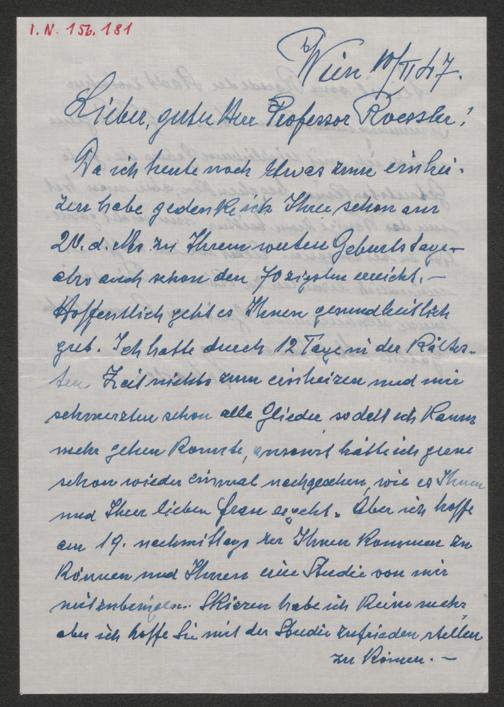 I.N. 156.181
Wien 10/II 47.
Lieber, guter Herr Professor Roessler!
Da ich heute noch etwas zum einhei-
zen habe gedenke ich Ihrer schon am
20. d. Ms. zu Ihrem Geburtstage
also auch schon den 70zigsten erreicht. –
Hoffentlich geht es Ihnen gesundheitlich
gut. Ich hatte durch 12 Tage in der Kältes-
ten Zeit nichts zum einheizen und mir
schmerzten schon alle Glieder so daß ich kaum
mehr gehen konnte, ansonst hätte ich gerne
schon wieder einmal nachgesehen, wie es Ihnen
und Ihrer lieben Frau geht. Aber ich hoffe
am 19. nachmittags zu Ihnen kommen zu
können und Ihnen eine Studie von mir
mitzubringen. Skizzen habe ich keine mehr
aber ich hoffe Sie mit der Studie zufrieden stellen
zu können. –